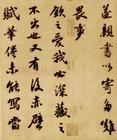 遂親書以寄多難
畏事
欽之愛我必深藏之
不出也又有後赤壁
賦筆倦未能寫當